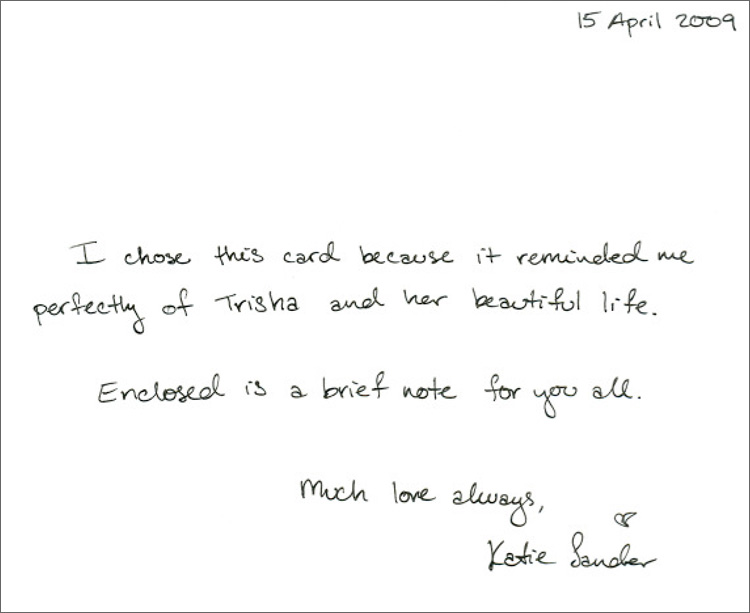 15 April 2009
I chose this card because it reminded me
perfectly of Trisha and her beautiful life.
Enclosed is a brief note for you all.
Much love always,
Katie Sander